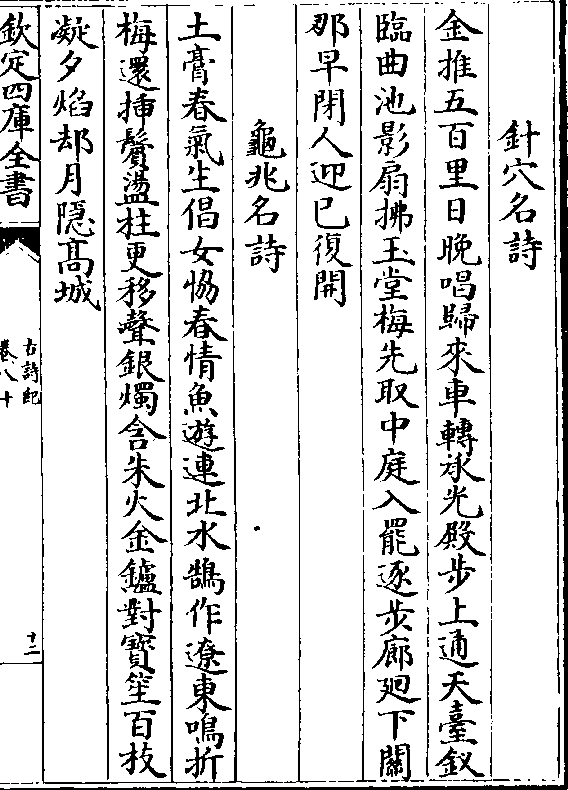 針穴名詩
金推五百里日晚唱歸來車轉承光殿步上通天臺釵
臨曲池影扇拂玉堂梅先取中庭入罷逐步廊廻下關
那早閉人迎已復開
龜兆名詩
土膏春氣生倡女協春情魚遊連北水鵠作遼東鳴折
梅還插鬢盪柱更移聲銀燭含朱火金鑪對寳笙百枝
凝夕焰却月隱髙城
欽定四庫全書
古詩紀
卷八十
十二